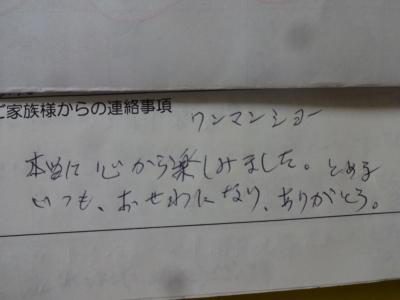 ご家族様からの連絡事項
ワンマンショー
本当に心から楽しみました。
いつも、おせわになり、ありがとう。